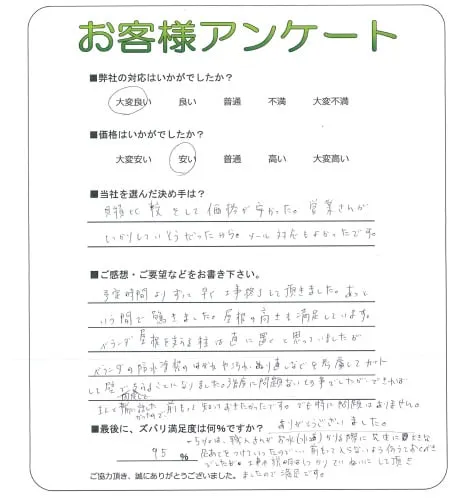 お客様アンケート
■弊社の対応はいかがでしたか？
大変良い 良い 普通 不満 大変不満
■価格はいかがでしたか？
大変安い 安い 普通 高い 大変高い
■当社を選んだ決め手は？
見積比較をして価格が安かった。営業さんが
しっかりしていそうだったから。メール対応もよかったです。
■ご感想・ご要望などをお書き下さい。
予定時間よりずっと早く工事終了して頂きました。あっと
いう間で驚きました。屋根の高さも満足しています。
ベランダ屋根を支える柱は直に置くと思っていましたが
ベランダの防水塗装のはがれや汚れ、ぬり直しなどを考慮してカット
して壁で支えることになりました。強度に問題ないとの事でしたができれば
前もって知っておきたかったです。でも特に問題はありません。
ありがとうございました。
■最後に、ズバリ満足度は何％ですか？
95 ％
-5%は、職人さんがお水(水道)かりる際に
ご協力頂き、誠にありがとうございました。
ましたので満足です。